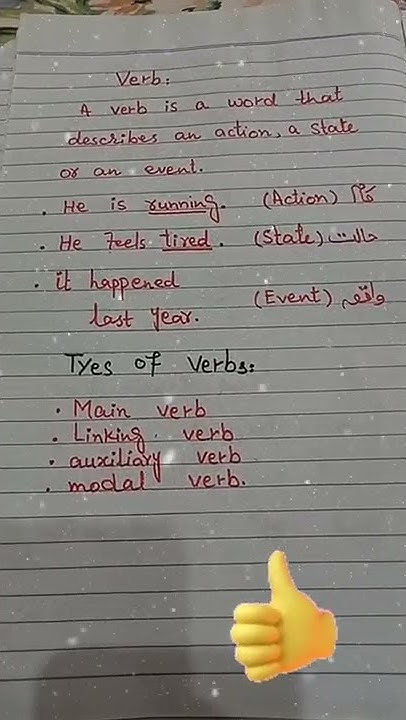 Verb:
A verb is a word that
describes an action, a state
or an event.
• He is running. (Action) کام
• He feels tired. (State) حالت
• it happened
last year. (Event) واقعہ
Tyes of verbs:
• Main verb
• Linking verb
• auxiliary verb
• modal verb.